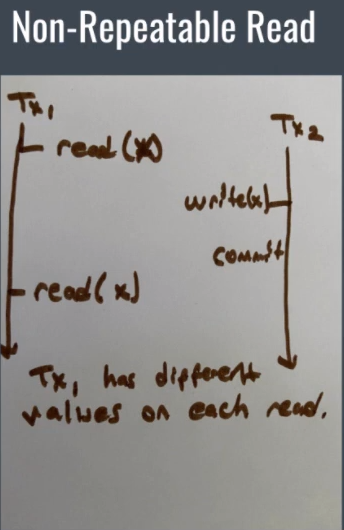 Non-Repeatable Read
Tx1
Tx2
read(x)
write(x)
commit
read(x)
Tx1 has different
values on each read.